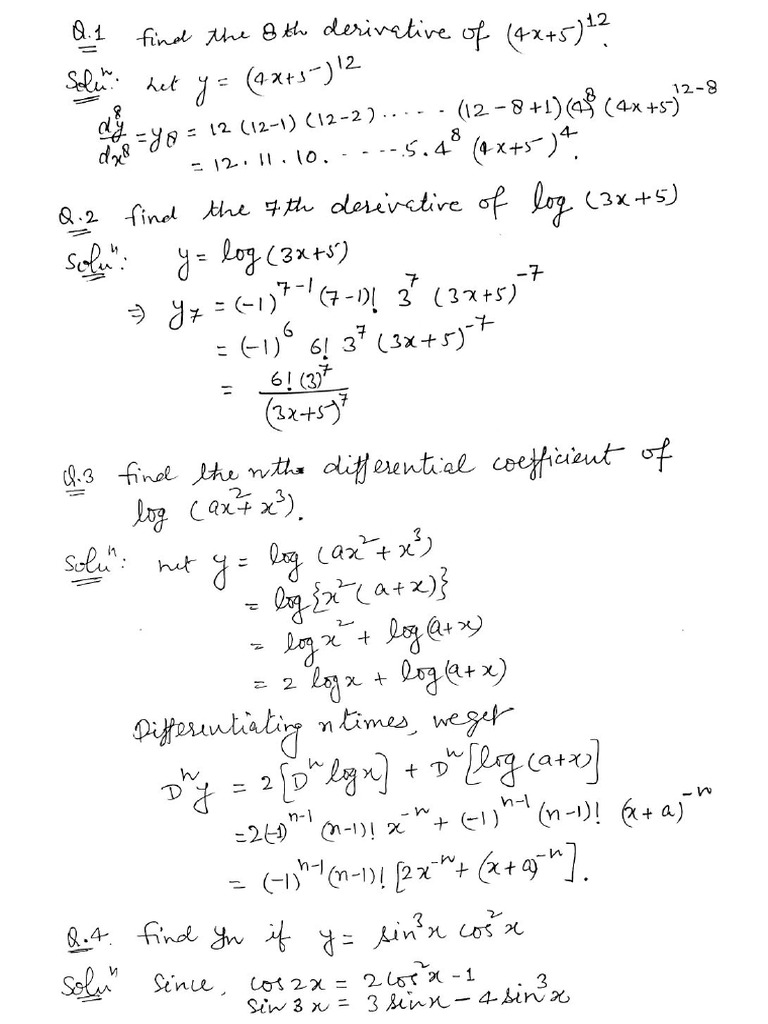 Q.1 find the 8th derivative of (4x+5)^12.
Soluⁿ: Let y = (4x+5)^12
d^8y/dx^8 = y8 = 12 (12-1) (12-2) ...... (12-8+1) (4)^8 (4x+5)^12-8
= 12. 11. 10. ......5. 4^8 (4x+5)^4.
Q.2 find the 7th derivative of log (3x+5)
Soluⁿ: y = log (3x+5)
⇒ y7 = (-1)^7-1 (7-1)! 3^7 (3x+5)^-7
= (-1)^6 6! 3^7 (3x+5)^-7
= 6! (3)^7 / (3x+5)^7
Q.3 find the nth differential coefficient of
log (ax^2 + x^3).
Soluⁿ: Let y = log (ax^2 + x^3)
= log {x^2 (a+x)}
= log x^2 + log (a+x)
= 2 log x + log (a+x)
Differentiating n times, we get
D^n y = 2 [D^n log x] + D^n [log (a+x)]
= 2(-1)^n-1 (n-1)! x^-n + (-1)^n-1 (n-1)! (x+a)^-n
= (-1)^n-1 (n-1)! [2x^-n + (x+a)^-n].
Q.4. find yn if y = sin^3 x cos^2 x
Soluⁿ Since, cos 2x = 2 cos^2 x - 1
sin 3x = 3 sin x - 4 sin^3 x